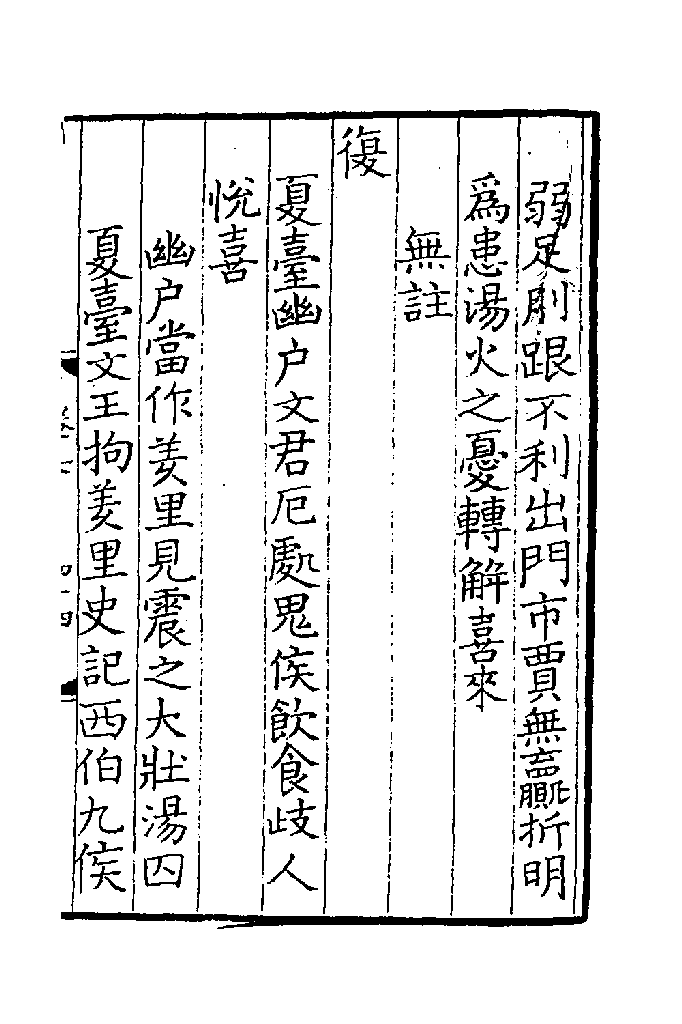 弱足刖跟不利出門市賈無贏折明
為患湯火之憂轉解喜來
無註
復
夏臺幽户文君厄處鬼侯飲食歧人
悅喜
幽户當作羑里見震之大壯湯囚
夏臺文王拘羑里史記西伯九侯